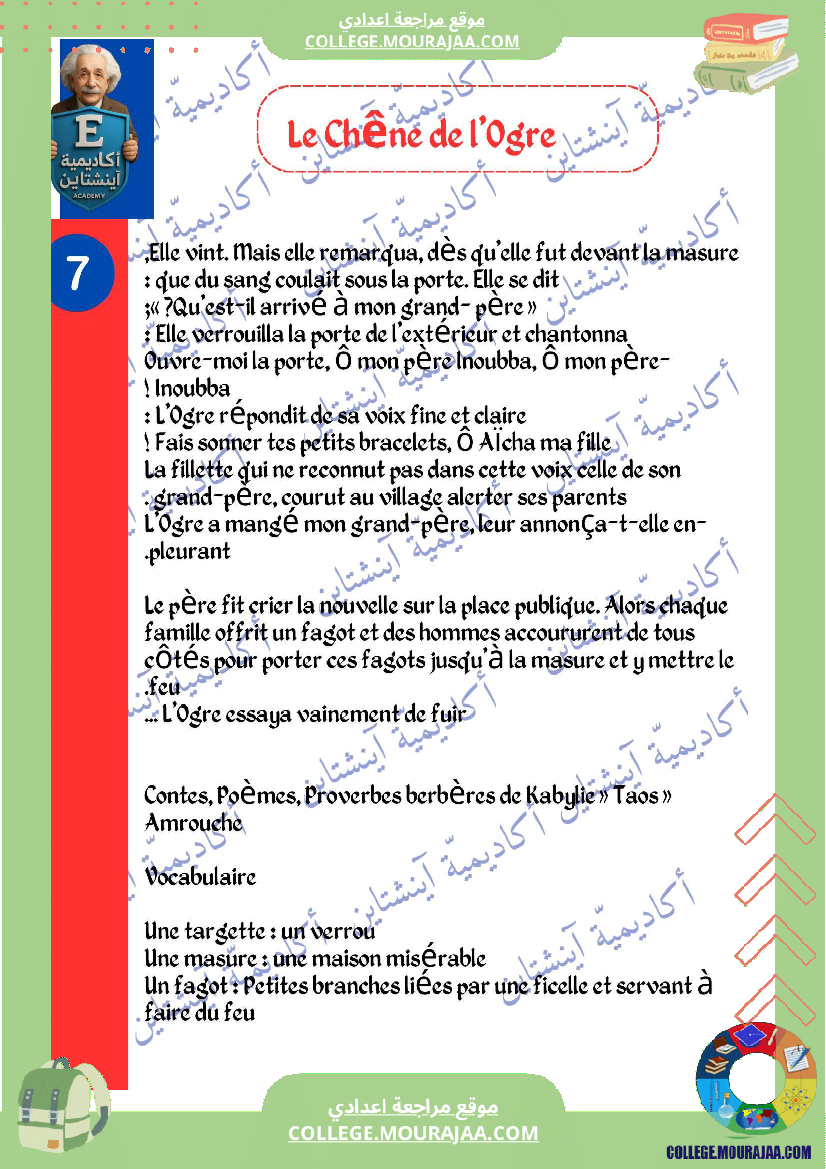 موقع مراجعة اعدادي
COLLEGE.MOURAJAA.COM
E
أكاديمية
آينشتاين
ACADEMY
Le Chêne de l'Ogre
7
,Elle vint. Mais elle remarqua, dès qu'elle fut devant la masure
: que du sang coulait sous la porte. Elle se dit
;« ?Qu'est-il arrivé à mon grand- père »
: Elle verrouilla la porte de l'extérieur et chantonna
Ouvre-moi la porte, Ô mon père Inoubba, Ô mon père-
! Inoubba
: L'Ogre répondit de sa voix fine et claire
! Fais sonner tes petits bracelets, Ô Aïcha ma fille
La fillette qui ne reconnut pas dans cette voix celle de son
. grand-père, courut au village alerter ses parents
L'Ogre a mangé mon grand-père, leur annonça-t-elle en-
.pleurant
Le père fit crier la nouvelle sur la place publique. Alors chaque
famille offrit un fagot et des hommes accoururent de tous
côtés pour porter ces fagots jusqu'à la masure et y mettre le
.feu
... L'Ogre essaya vainement de fuir
Contes, Poèmes, Proverbes berbères de Kabylie » Taos »
Amrouche
Vocabulaire
Une targette : un verrou
Une masure : une maison misérable
Un fagot : Petites branches liées par une ficelle et servant à
faire du feu
أكاديميّة آينشتاين
موقع مراجعة اعدادي
COLLEGE.MOURAJAA.COM
COLLEGE.MOURAJAA.COM